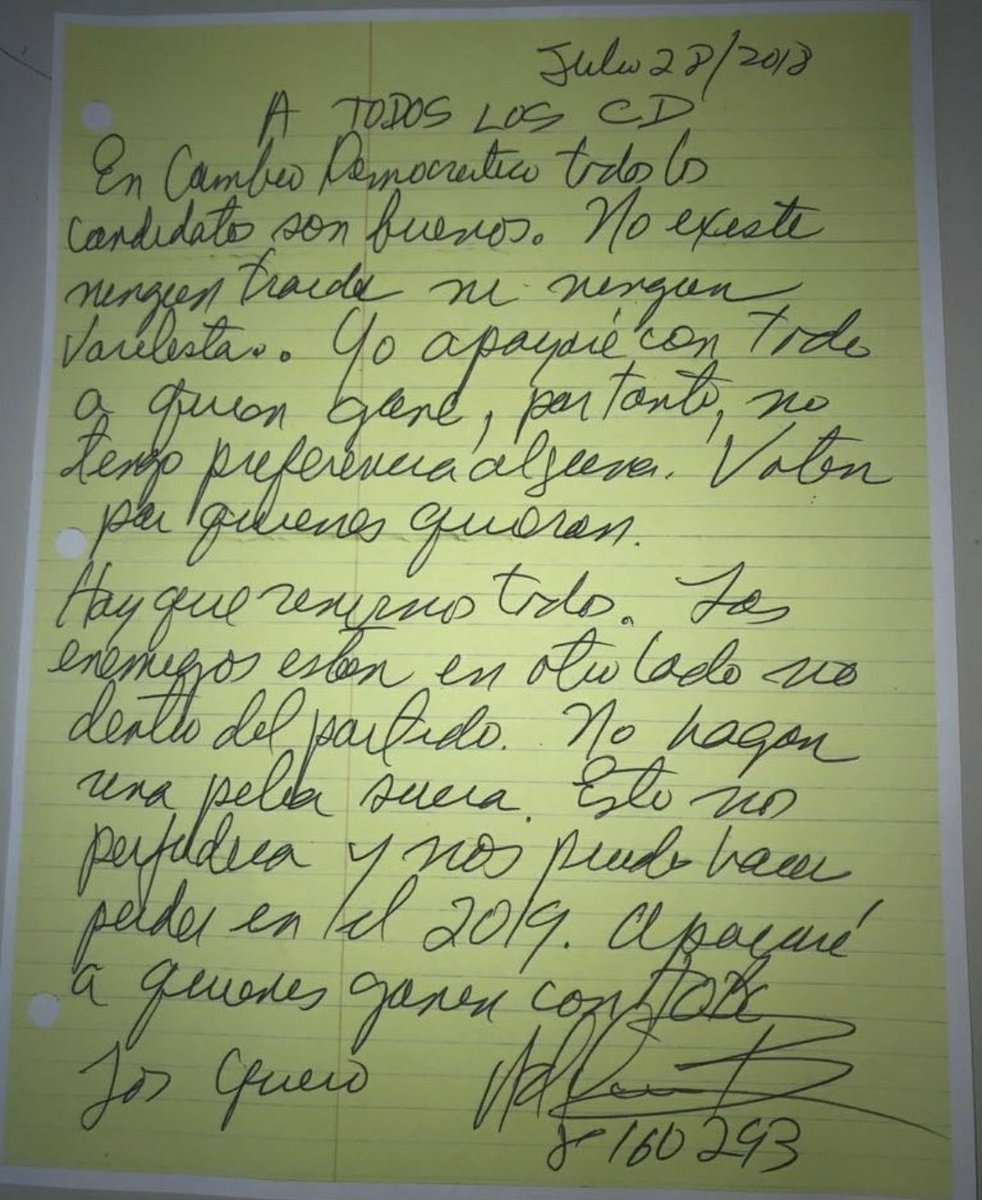 Julio 28/2018
A TODOS LOS CD
En Cambio Democratico todos los
candidatos son buenos. No existe
ningun traidor ni ningun
Varelista.. Yo apoyaré con todo
a quien gane, por tanto, no
tengo preferencia alguna. Voten
por quienes quieran.
Hay que reunirnos todos. Los
enemigos estan en otro lado no
dentro del partido. No hagan
una pelea sucia. Esto nos
perjudica y nos puede hacer
perder en el 2019. Apoyaré
a quienes ganen con todo
Los quiero
8 160 293